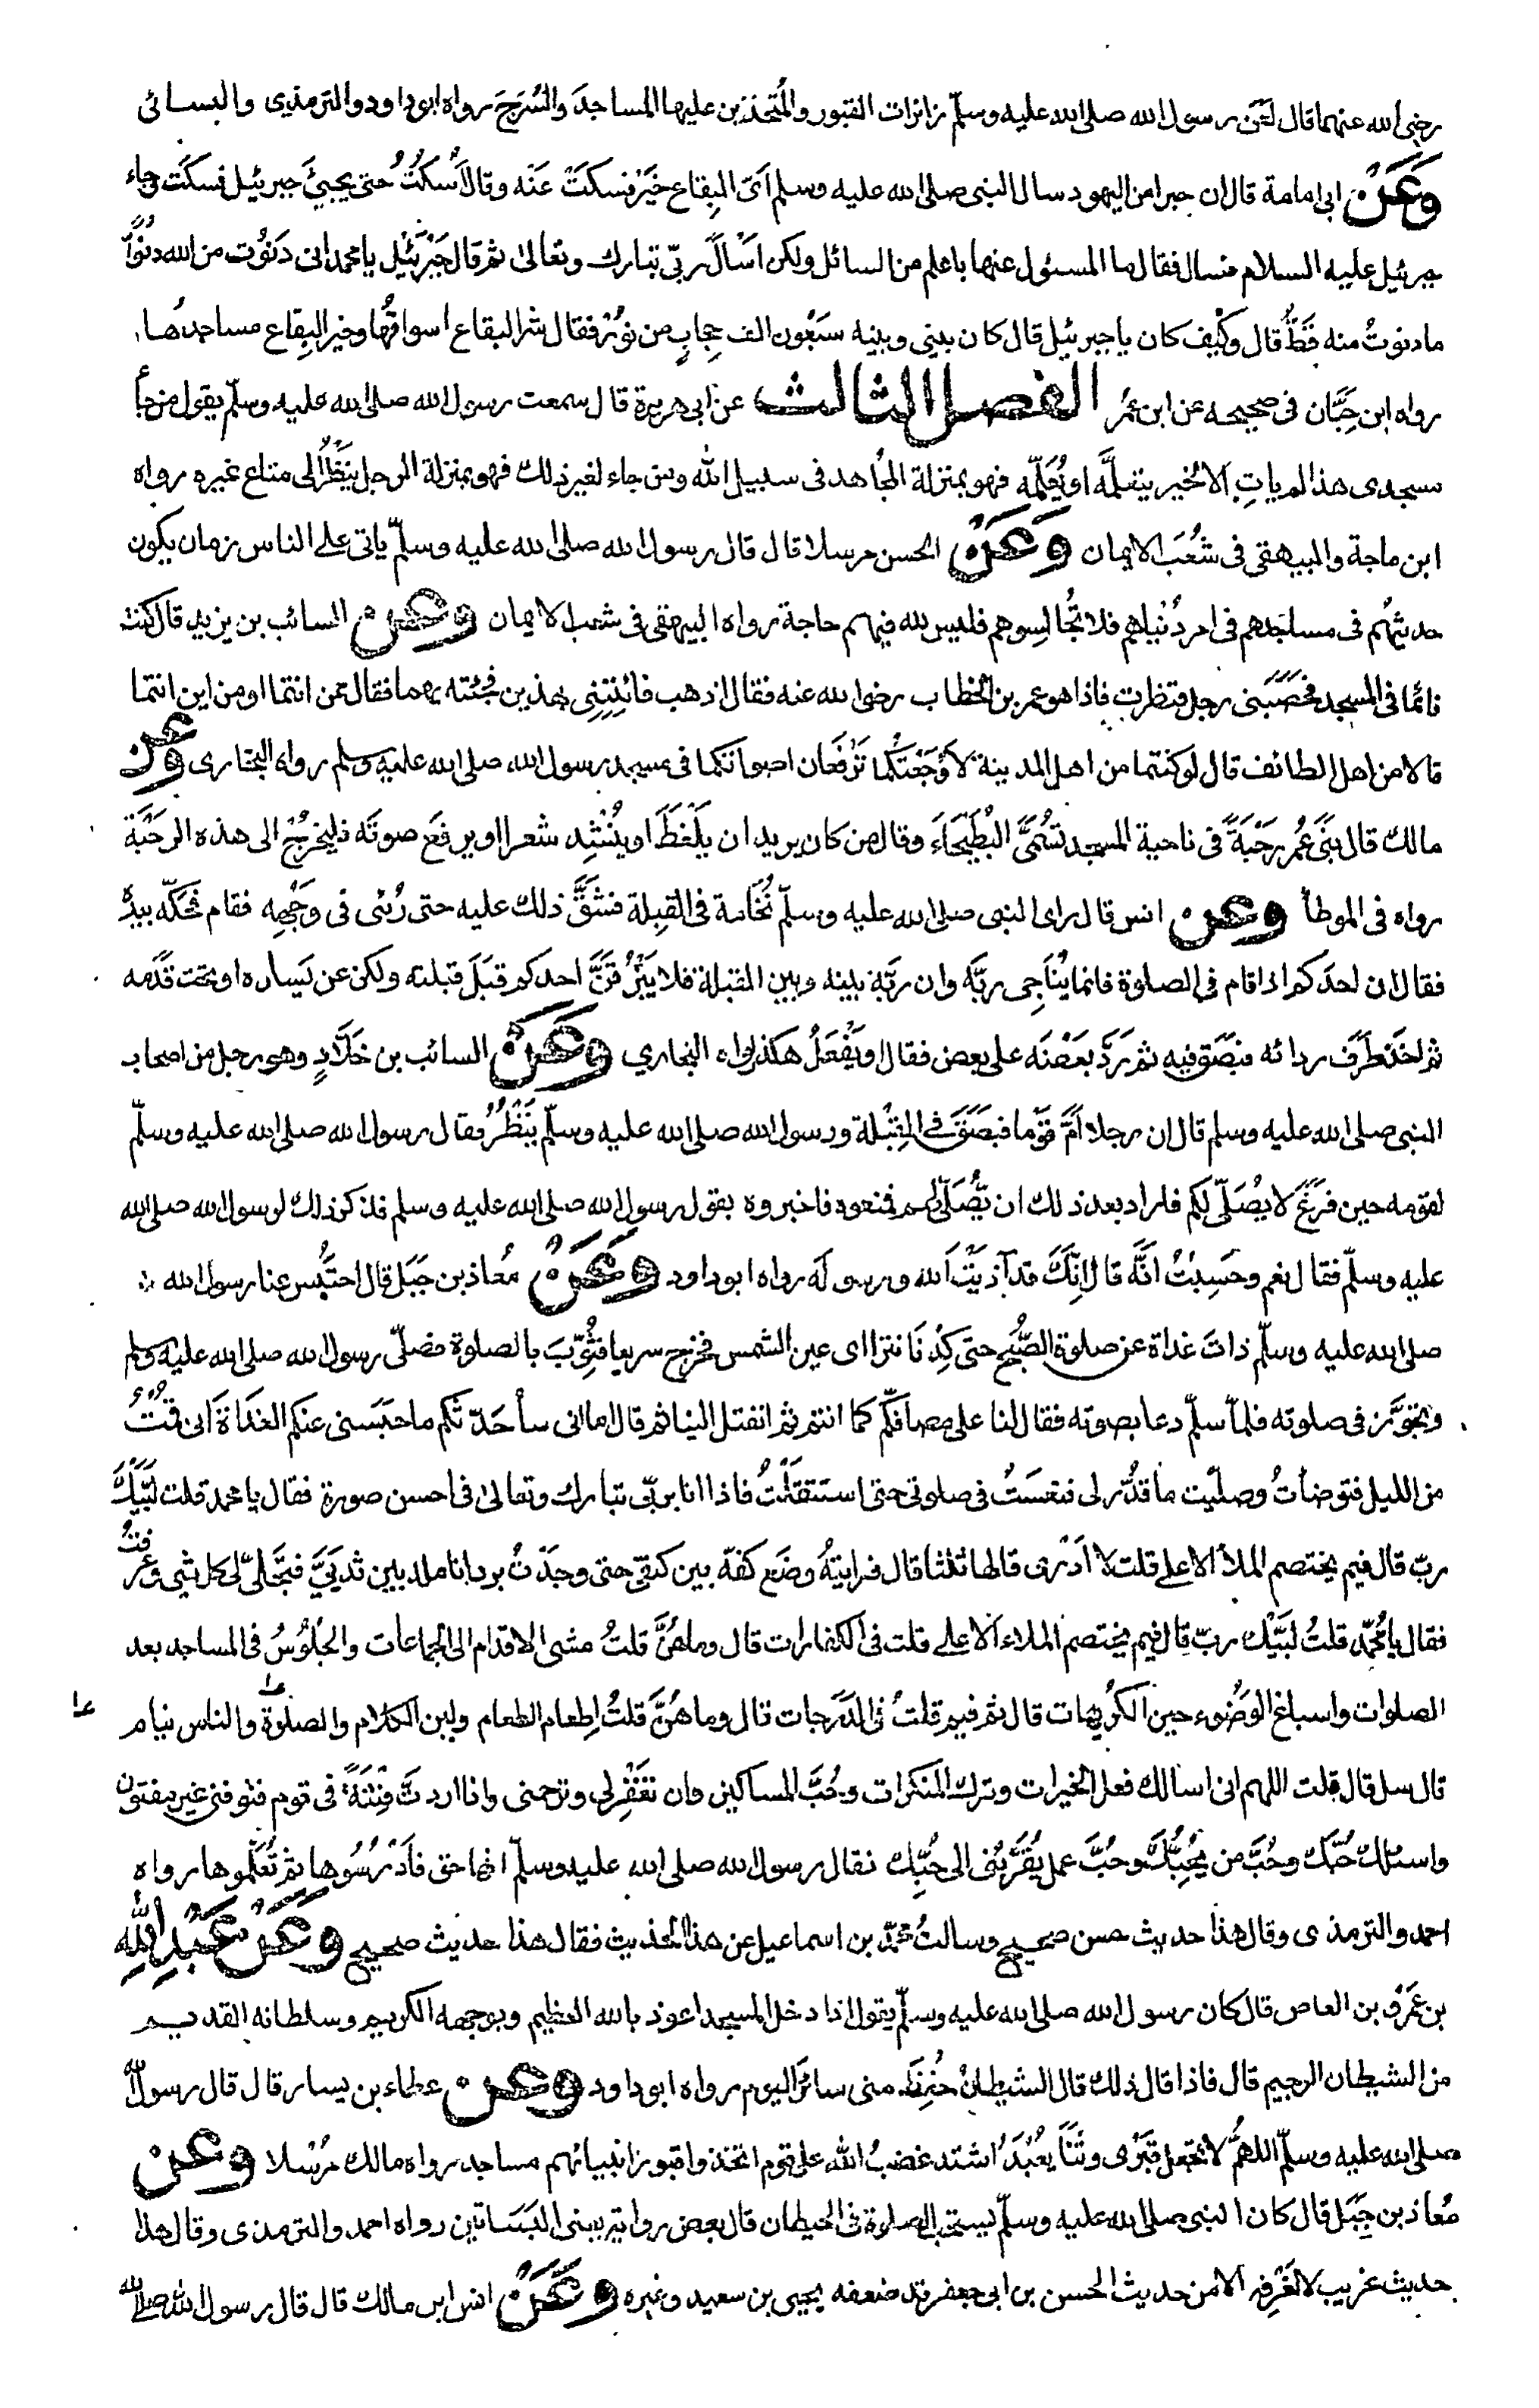 رضي الله عنهما قال لَعَنَ رسول الله صلى الله عليه وسلّم زائرات القبور والمُتّخذين عليها المساجدَ والسُرَجَ رواه ابوداود والترمذى والنسائى
وَعَنْ ابى امامة قال ان حبرا من اليهود سال النبى صلى الله عليه وسلم اىّ البِقاع خَيْر فسكتَ عَنْه وقال اَسْكُتُ حتى يجيئَ جبرئيل فسكَت وجاء
جبرئيل عليه السلام فسال فقال ما المسئول عنها باعلم من السائل ولكن اَسْالُ ربّى تبارك وتعالى ثم قال جَبْرَئيْل يا محمد انى دَنَوْت من الله دُنُوًّا
ما دنوتُ منه قَطُّ قال وكَيْف كان يا جبرئيل قال كان بينى وبينه سَبْعُون الف حِجابٍ من نُوْر فقال شر البقاع اسواقُها وخير البِقاع مساجدُها
رواه ابن حِبَّان فى صحيحه عن ابن عُمر الفصل الثالث عن ابى هريرة قال سمعت رسول الله صلى الله عليه وسلّم يقول من جاء
مسجدى هذا لم ياتِ الا لخير يتعلمَّه او يُعَلّمه فهو بمنزلة المُجاهد فى سبيل الله ومن جاء لغير ذلك فهو بمنزلة الرجل يَنْظُرُ الى متاع غيره رواه
ابن ماجة والبيهقى فى شُعَب الايمان وَعَنْ الحسن مرسلا قال قال رسول الله صلى الله عليه وسلّم ياتى على الناس زمان يكون
حديثُهم فى مساجدهم فى امر دُنْياهم فلا تُجالسوهم فليس لله فيهم حاجة رواه البيهقى فى شعب الايمان وعن السائب بن يزيد قال كنت
نائمًا فى المسجد فحَصَبَنى رجل فنظرت فاذا هو عمر بن الخطاب رضى الله عنه فقال اذهب فائتِنِى بهذين فجئته بهما فقال ممن انتما او من اين انتما
قالا من اهل الطائف قال لو كنتما من اهل المدينة لاَوْجَعْتُكما تَرْفَعَان اصواتكما فى مسجد رسول الله صلى الله عليه وسلم رواه البخارى وعن
مالك قال بَنَى عُمر رَحْبَةً فى ناحية المسجد تُسَمَّى البُطَيْحَاءَ وقال من كان يريد ان يَلْغَطَ او يُنْشِد شعرا او يرفَع صوتَه فليخرُجْ الى هذه الرحْبَة
رواه فى الموطأ وعن انس قال راى النبى صلى الله عليه وسلّم نُخَامة فى القِبلة فشَقَّ ذلك عليه حتى رُئى فى وَجْهِه فقام فحَكّه بيدِهٖ
فقال ان احدَكم اذا قام فى الصلوة فانما يُنَاجى ربَّه وان ربَّه بينه وبين القبلة فلا يَبْزُقَنَّ احدكم قِبَلَ قبلته ولكن عن يَسارِه او تحت قدَمه
ثم اخذ طَرَف ردائه فبَصَق فيه ثم رَدَّ بعضَه على بعض فقال او يَفْعَلُ هكذا رواه البخاري وَعَنْ السائب بن خَلَّادٍ وهو رجل من اصحاب
النبى صلى الله عليه وسلم قال ان رجلا اَمَّ قَوْما فبَصَقَ فى القِبْلة ورسول الله صلى الله عليه وسلّم يَنْظُرُ فقال رسول الله صلى الله عليه وسلّم
لقومه حين فرَغَ لا يُصَلّى لكم فاراد بعد ذلك ان يُّصَلّى لهم فمنعوه فاخبروه بقول رسول الله صلى الله عليه وسلم فذكر ذلك لرسول الله صلى الله
عليه وسلّم فقال نعم وحَسِبْتُ اَنَّه قال اِنَّكَ قد آذيْتَ الله ورسولَه رواه ابوداود وَعَنْ مُعاذ بن جَبَل قال احتَبَس عنا رسول الله
صلى الله عليه وسلّم ذاتَ غداة عن صلوة الصُّبح حتى كِدْنَا نتراأى عين الشمس فخرج سريعا فثُوِّبَ بالصلوة فصَلّى رسول الله صلى الله عليه وسلم
وتجَوَّز فى صلوته فلمّا سلّم دعا بصوته فقال لنا على مصافّكُم كما انتم ثم انفتل الينا ثم قال اما انى سأُحَدّثكم ما حَبَسنى عنكم الغَدَاةَ انى قُمْتُ
من الليل فتوضأتُ وصلّيت ما قُدّر لى فنعَسْتُ فى صلوتى حتى استَثقَلْتُ فاذا انا بربّى تبارك وتعالى فى احسن صورة فقال يا محمد قلت لَبَّيْكَ
ربّ قال فيم يختصم الملأ الاعلى قلت لا اَدْرى قالها ثلثا قال فرايتهُ وضَع كفّه بين كتفىّ حتى وجَدْتُ برد انامله بين ثديَىَّ فتجَلّى لى كل شىء وعرفتُ
فقال يا مُحمّد قلتُ لَبَّيْك ربّ قال فيم يختصم الملاء الاعلى قلت فى الكفارات قال وما هُنَّ قلتُ مشى الاقدام الى الجماعات والجُلُوْسُ فى المساجد بعد
الصلوات واسباغ الوَضُوء حين الكرُيهات قال ثم فيم قلتُ فى الدَرجات قال وما هُنّ قلتُ اِطعام الطعام ولين الكلام والصلوة والناس نيام
قال سل قال قلت اللهم انى اسالك فعل الخيرات وترك المنكرات وحُبَّ المساكين وان تغفِرلى وترحمنى واذا اردتَّ فِتْنَةً فى قوم فتوفنى غير مفتون
واسئلك حُبّك وحُبَّ من يُّحِبُّكَ وحُبَّ عمل يُقَرّبُنى الى حُبِّك فقال رسول الله صلى الله عليه وسلّم انها حق فَادْرُسُوها ثم تَعَلَّموها رواه
احمد والترمذى وقال هذا حديث حسن صحيح وسالتُ محمّد بن اسماعيل عن هذا الحديث فقال هذا حديث صحيح وَعَنْ عَبْدِ اللهِ
بن عَمْرو بن العاص قال كان رسول الله صلى الله عليه وسلّم يقول اذا دخل المسجد اعوذ بالله العظيم وبوجهه الكريم وسلطانه القديم
من الشيطان الرجيم قال فاذا قال ذلك قال الشيطانُ حُفِظَ منى سائرَ اليوم رواه ابوداود وعن عطاء بن يسار قال قال رسول الله
صلى الله عليه وسلّم اللهمَّ لا تجعل قبرى وثَنًا يُعْبَدُ اشتد غضبُ الله على قوم اتخذوا قبور انبيائهم مساجد رواه مالك مُرْسلا وعن
مُعاذ بن جَبَل قال كان النبى صلى الله عليه وسلّم يستحب الصلوة فى الحيطان قال بعض رواته يعنى البَسَاتين رواه احمد والترمذى وقال هذا
حديث غريب لا نَعْرِفه الا من حديث الحسن بن ابى جعفر وقد ضعفه يحيى بن سعيد وغيره وَعَنْ انس ابن مالك قال قال رسول الله صلى الله